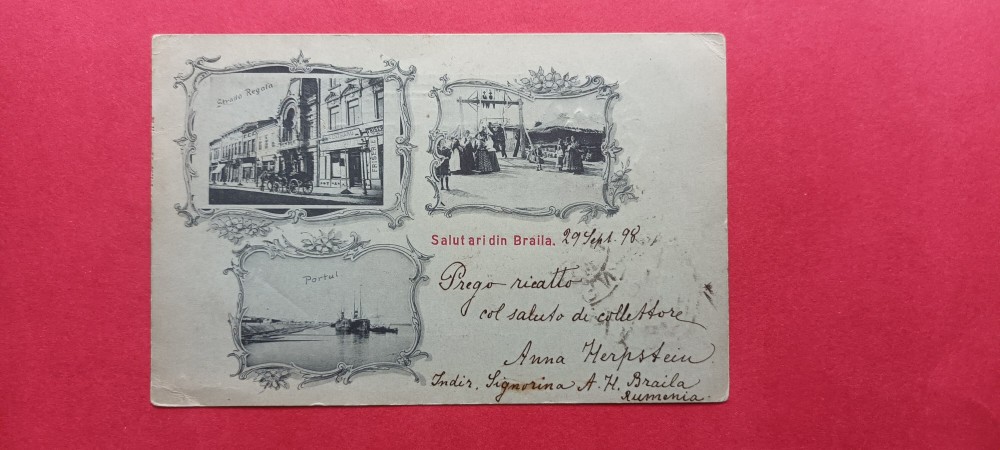 Strada Regala
FRISER
Portul
Salutari din Braila. 29 Sept. 98.
Prego ricatto
col saluto di collettore
Anna Herpstein
Indir. Signorina A. H. Braila
Rumenia.